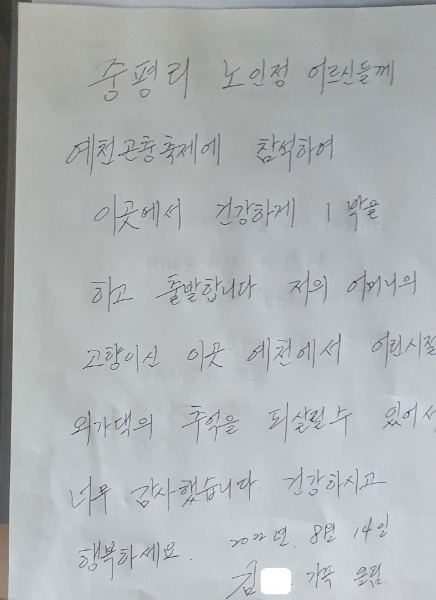 중평리 노인정 어르신들께
예천곤충축제에 참석하여
이곳에서 건강하게 1박을
하고 출발합니다 저의 어머니의
고향이신 이곳 예천에서 어린시절
외가댁의 추억을 되살릴수 있어서
너무 감사했습니다. 건강하시고
행복하세요. 2022년. 8월 14일
김 가족 올림